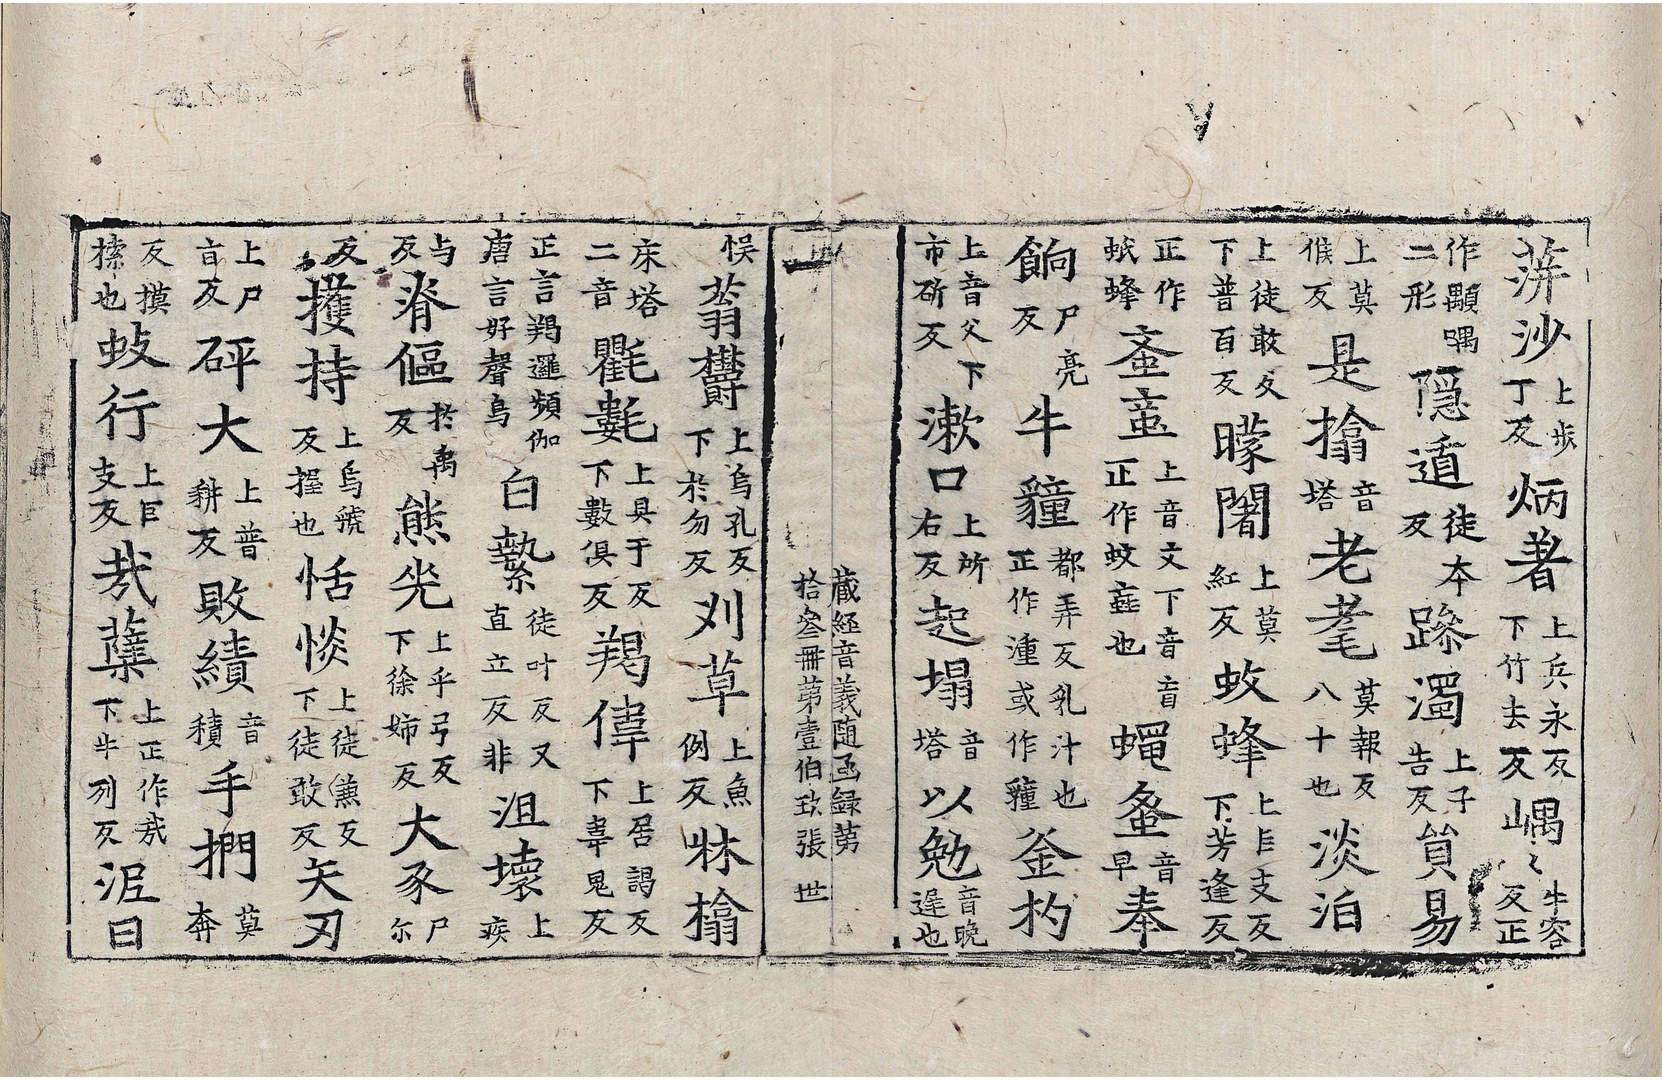 蓱沙上步丁反炳著上兵永反下竹去反嵎〻牛容反正
作顒喁二形隱遁徒本反蹹濁上子告反貿易
上莫候反是搚音塔老耄莫報反八十也淡泊
上徒敢反下普百反曚闇上莫紅反蚊蜂上巨支反下芳逢反
正作蚔蜂蚉䖟上音文下音盲正作蚊蝱也蠅蚤音早奉
餉尸亮反牛䮵都弄反乳汁也正作湩或作䮵釜杓
上音父下市斫反漱口上所右反起塌音塔以勉音晚遟也
藏經音義随函録第
拾叁冊第壹伯玖張 世
悮蓊欝上烏孔反下於勿反刈草上魚例反牀榻
床塔二音氍㲣上具于反下數俱反羯偉上居謁反下韋鬼反
正言羯邏頻伽唐言好聲鳥白縶徒叶反又直立反非沮壊上疾
与反脊傴於禹反熊兕上乎弓反下徐姉反大豕尸尓
反擭持上烏虢反握也恬惔上徒兼反下徒敢反矢刃
上尸盲反砰大上普耕反敗績音積手捫莫奔
反摸㨞也蚑行上巨支反烖蘖上正作烖下牛列反泥曰